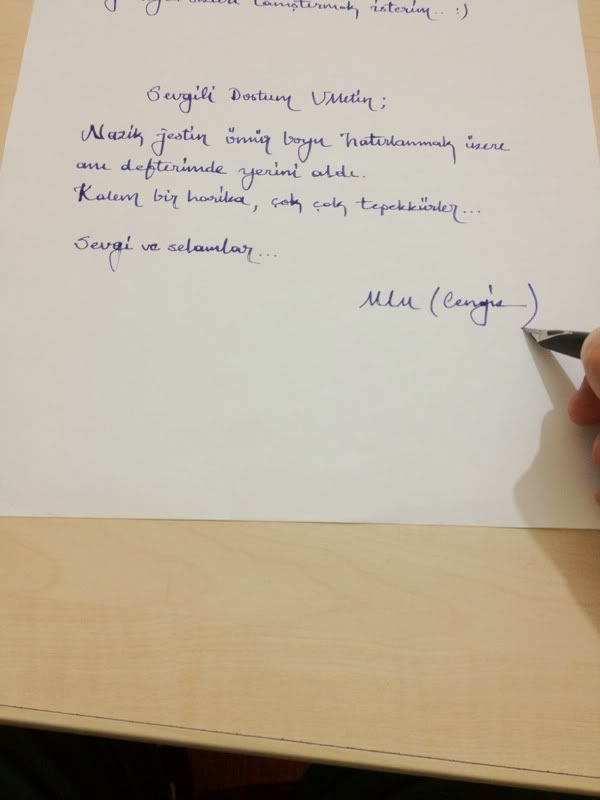 tanıştırmak isterim.. :)
Sevgili Dostum Metin;
Nazik jestin ömür boyu hatırlanmak üzere
anı defterimde yerini aldı.
Kalem bir harika, çok çok teşekkürler...
Sevgi ve selamlar...
(Cengiz)